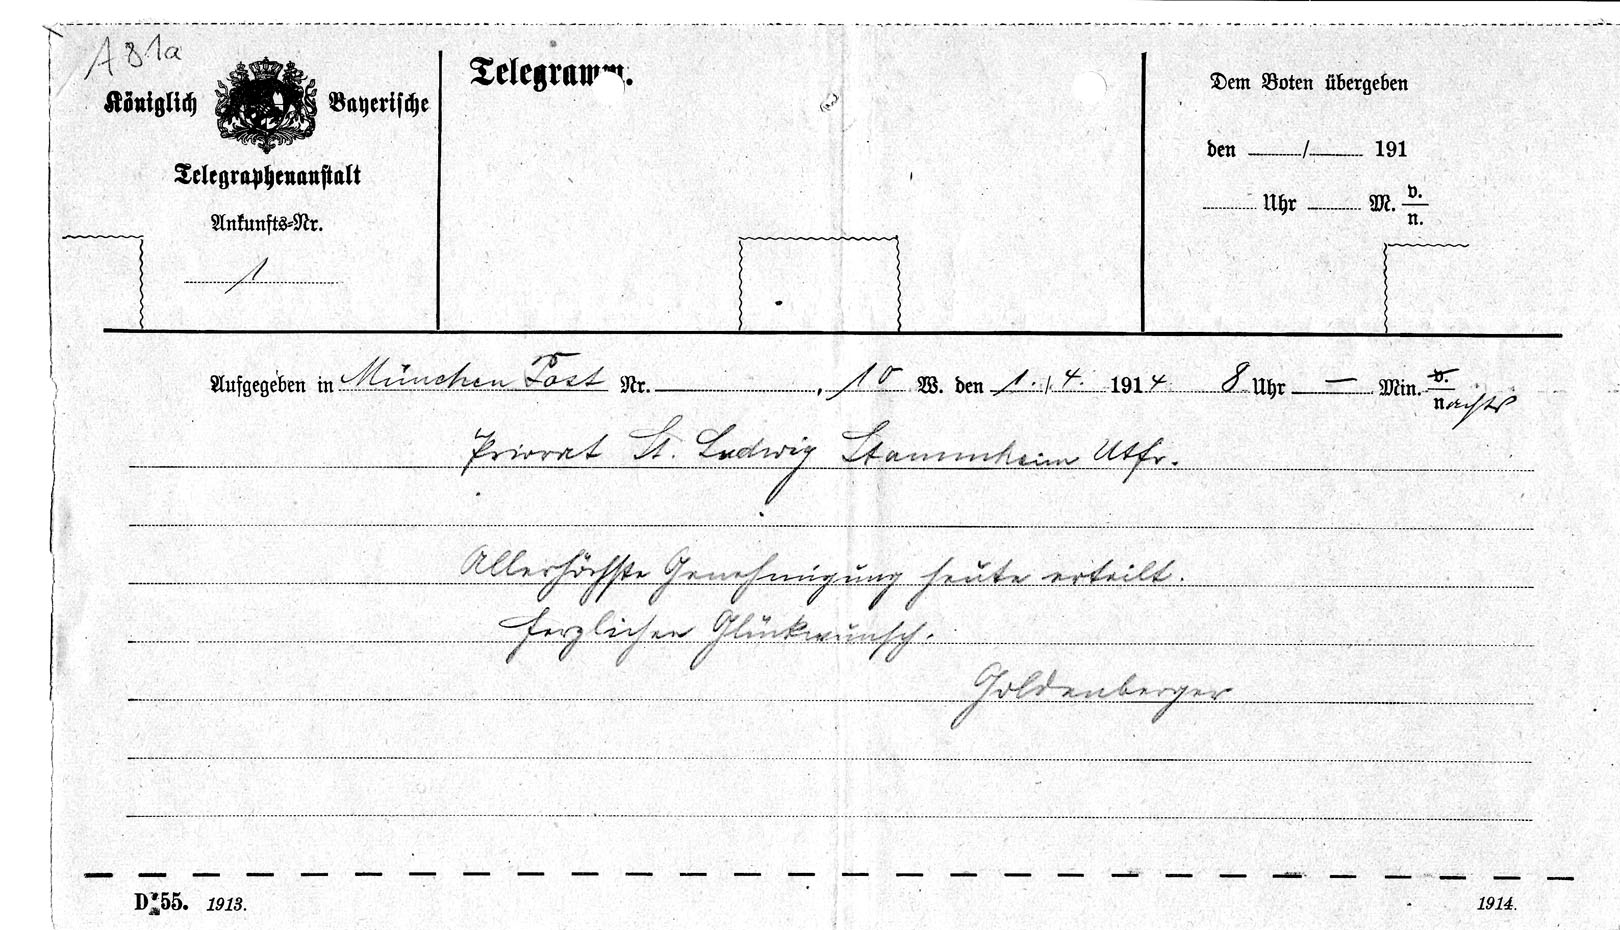 A 81a
Königlich Bayerische
Telegraphenanstalt
Ankunfts-Nr.
1
Telegramm.
Dem Boten übergeben
den / 191
Uhr M. v./n.
Aufgegeben in München Post Nr. , 10 W. den 1./4. 1914 8 Uhr — Min. v./nachts
Priorat St. Ludwig Stammheim Utfr.
Allerhöchste Genehmigung heute erteilt.
Herzlichen Glückwunsch.
Goldenberger
D 55. 1913.
1914.